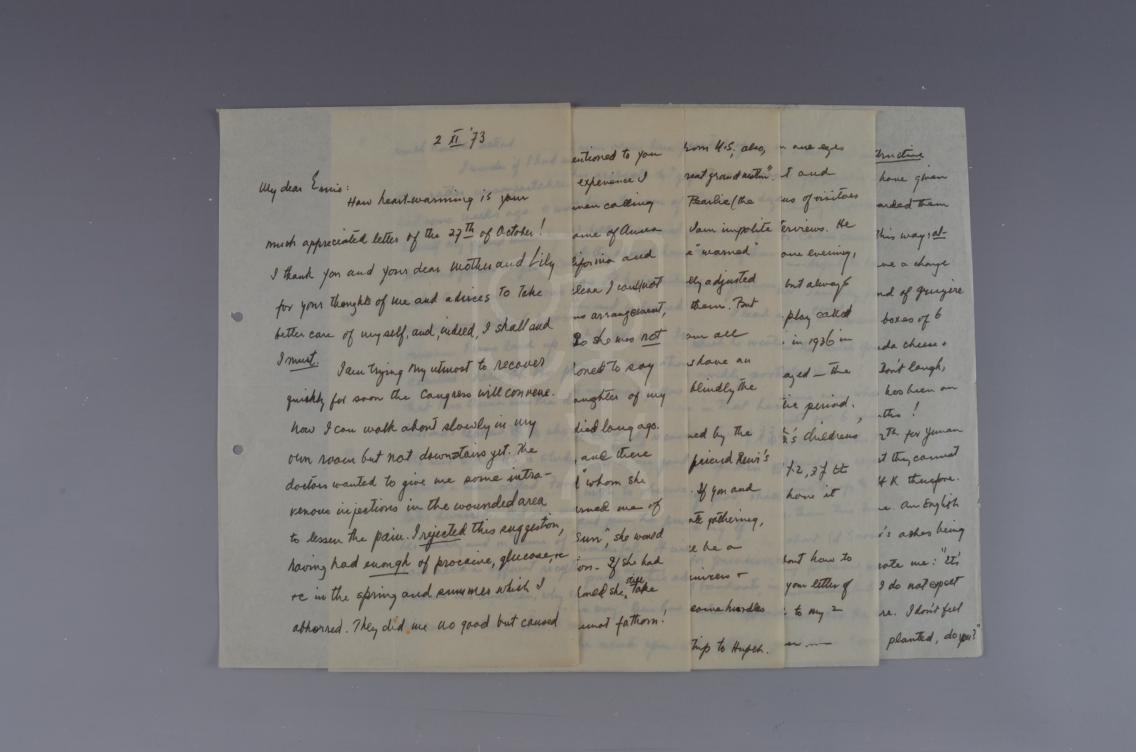 2 XI '73
My dear Ernie:
How heart-warming is your
much appreciated letter of the 27th of October!
I thank you and your dear Mother and Lily
for your thoughts of me and advices to take
better care of myself, and, indeed, I shall and
I must. I am trying my utmost to recover
quickly for soon the Congress will convene.
Now I can walk about slowly in my
own room but not downstairs yet. The
doctors wanted to give me some intra-
venous injections in the wounded area
to lessen the pain. I rejected this suggestion,
having had enough of procaine, glucose, &c
&c in the spring and summer which I
abhorred. They did me no good but caused
entioned to you
experience I
calling
ame of
lifornia and
clear I could not
no arrangement,
So she was not
phoned to say
aughter of my
died long ago.
and there
whom she
urned me of
she would
on. If she had
she still take
cannot fathom!
from U.S, also,
great grandmother".
Pearlie (the
I am impolite
"warned"
lly adjusted
them. But
all
have an
blindly the
ned by the
friend Rewi's
If you and
gathering,
be a
some hurdles
trip to Hupeh.
are eyes
t and
us of visitors
terviews. He
one evening,
but always
play called
in 1936 in
ayed — the
tic period.
's children's
have it
bout how to
your letter of
to my 2
structive
have given
arded them
this way: at
a change
nd of gruyère
boxes of 6
da cheese.
Don't laugh,
has been an
this!
for Yunan
t they cannot
H K therefore.
An English
's ashes being
wrote me: "It's
I do not expect
re. I don't feel
planted, do you?"